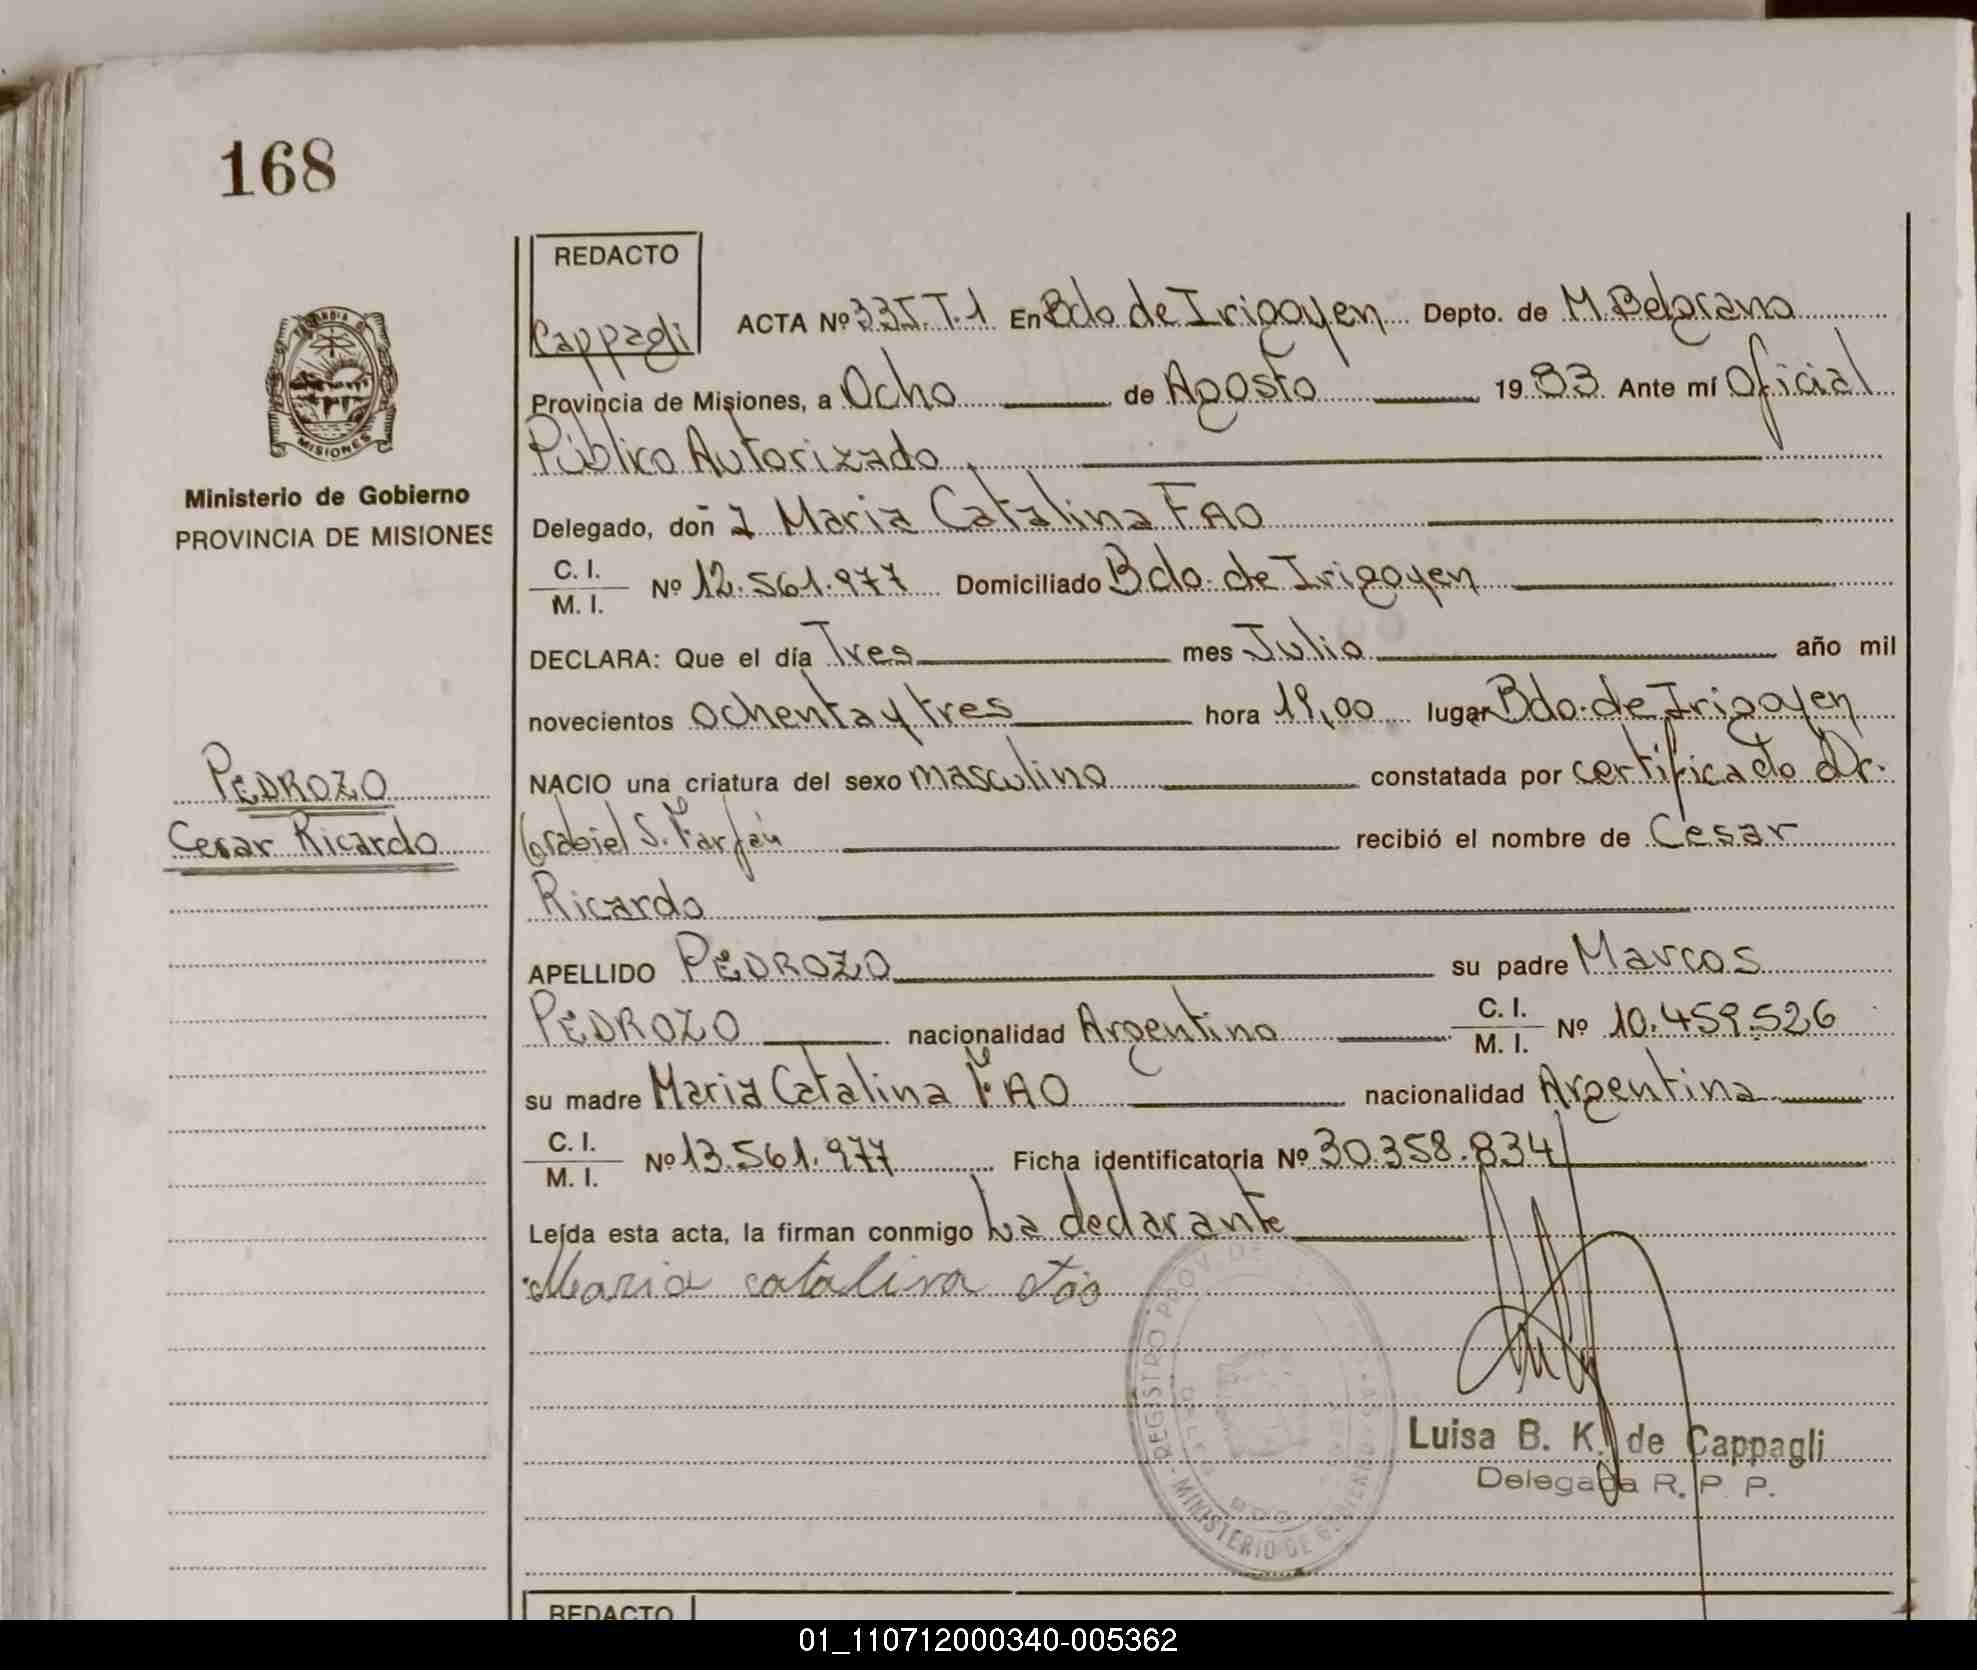 168
REDACTO
Cappagli
ACTA Nº 335.T.1 En Bdo de Irigoyen Depto. de M. Belgrano
Provincia de Misiones, a Ocho de Agosto 1983 Ante mí Oficial
Público Autorizado
Delegado, doñ a Maria Catalina FAO
C. I.
M. I.
Nº 12.561.977 Domiciliado Bdo. de Irigoyen
DECLARA: Que el día Tres mes Julio año mil
novecientos ochenta y tres hora 19,00 lugar Bdo. de Irigoyen
NACIO una criatura del sexo masculino constatada por certificado Dr.
Gabriel S. Farfán recibió el nombre de Cesar
Ricardo
APELLIDO PEDROZO su padre Marcos
PEDROZO nacionalidad Argentino C. I.
M. I. Nº 10.459.526
su madre Maria Catalina FAO nacionalidad Argentina
C. I.
M. I.
Nº 13.561.977 Ficha identificatoria Nº 30.358.834
Leída esta acta, la firman conmigo La declarante
Maria catalina Fao
Luisa B. K. de Cappagli
Delegada R. P. P.
REGISTRO PROV. DE
MINISTERIO DE GOBIERNO
MISIONES
Ministerio de Gobierno
PROVINCIA DE MISIONES
PEDROZO
Cesar Ricardo
REDACTO
01_110712000340-005362